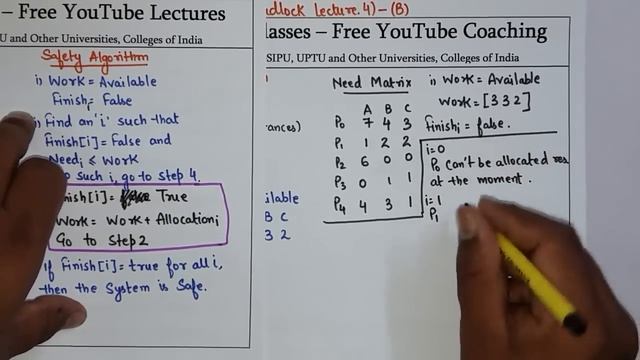 – Free YouTube Lectures
U and Other Universities, Colleges of India
Safety Algorithm
i) Work = Available
Finishᵢ = False
Find an 'i' such that
Finish[i] = False and
Needᵢ ≤ Work
such i, go to Step 4.
nish[i] = True
Work = Work + Allocationᵢ
Go to Step 2
If Finish[i] = true for all i,
then the System is Safe.
dlock Lecture. 4) – (B)
lasses – Free YouTube Coaching
SIPU, UPTU and Other Universities, Colleges of India
ances)
ilable
B C
3 2
Need Matrix
A B C
P₀ 7 4 3
P₁ 1 2 2
P₂ 6 0 0
P₃ 0 1 1
P₄ 4 3 1
i) Work = Available
Work = [3 3 2]
Finishᵢ = false.
i=0
P₀ can't be allocated res
at the moment.
i=1
P₁